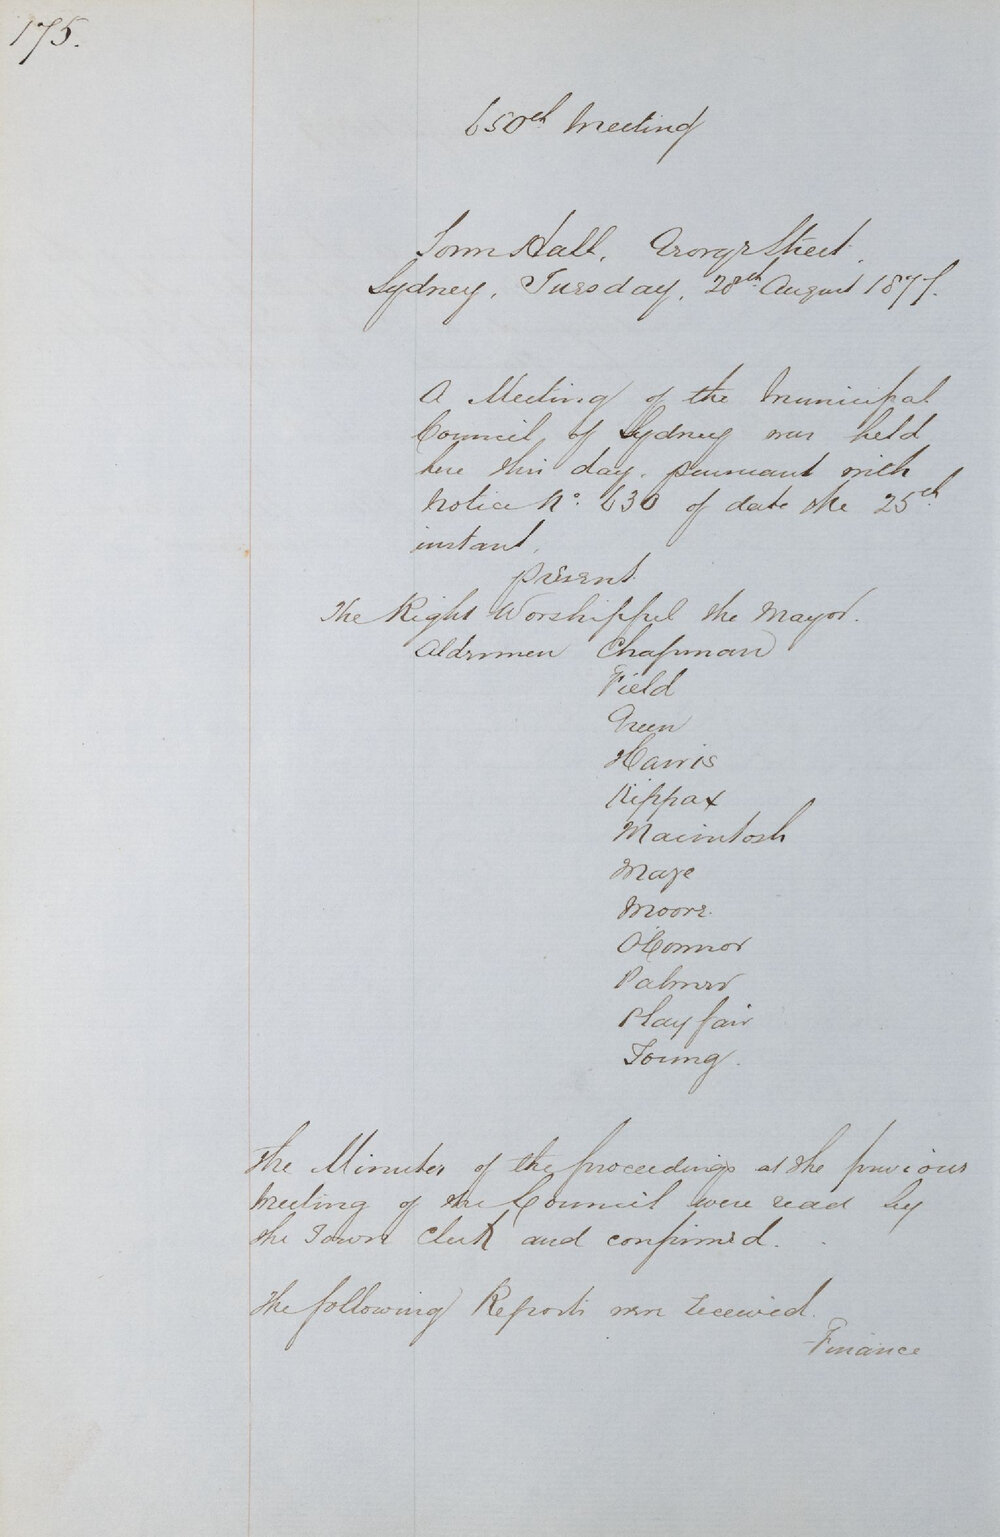 175.
650th Meeting
Town Hall, George Street,
Sydney, Tuesday, 28th August 1877.
A Meeting of the Municipal
Council of Sydney was held
here this day, pursuant with
Notice No. 630 of date the 25th
instant,
Present
The Right Worshipful the Mayor.
Aldermen Chapman
Field
Green
Harris
Kippax
Macintosh
Maze
Moore.
O'Connor
Palmer
Playfair
Young.
The Minutes of the proceedings at the previous
Meeting of the Council were read by
the Town Clerk and confirmed.
The following Reports were received.
Finance